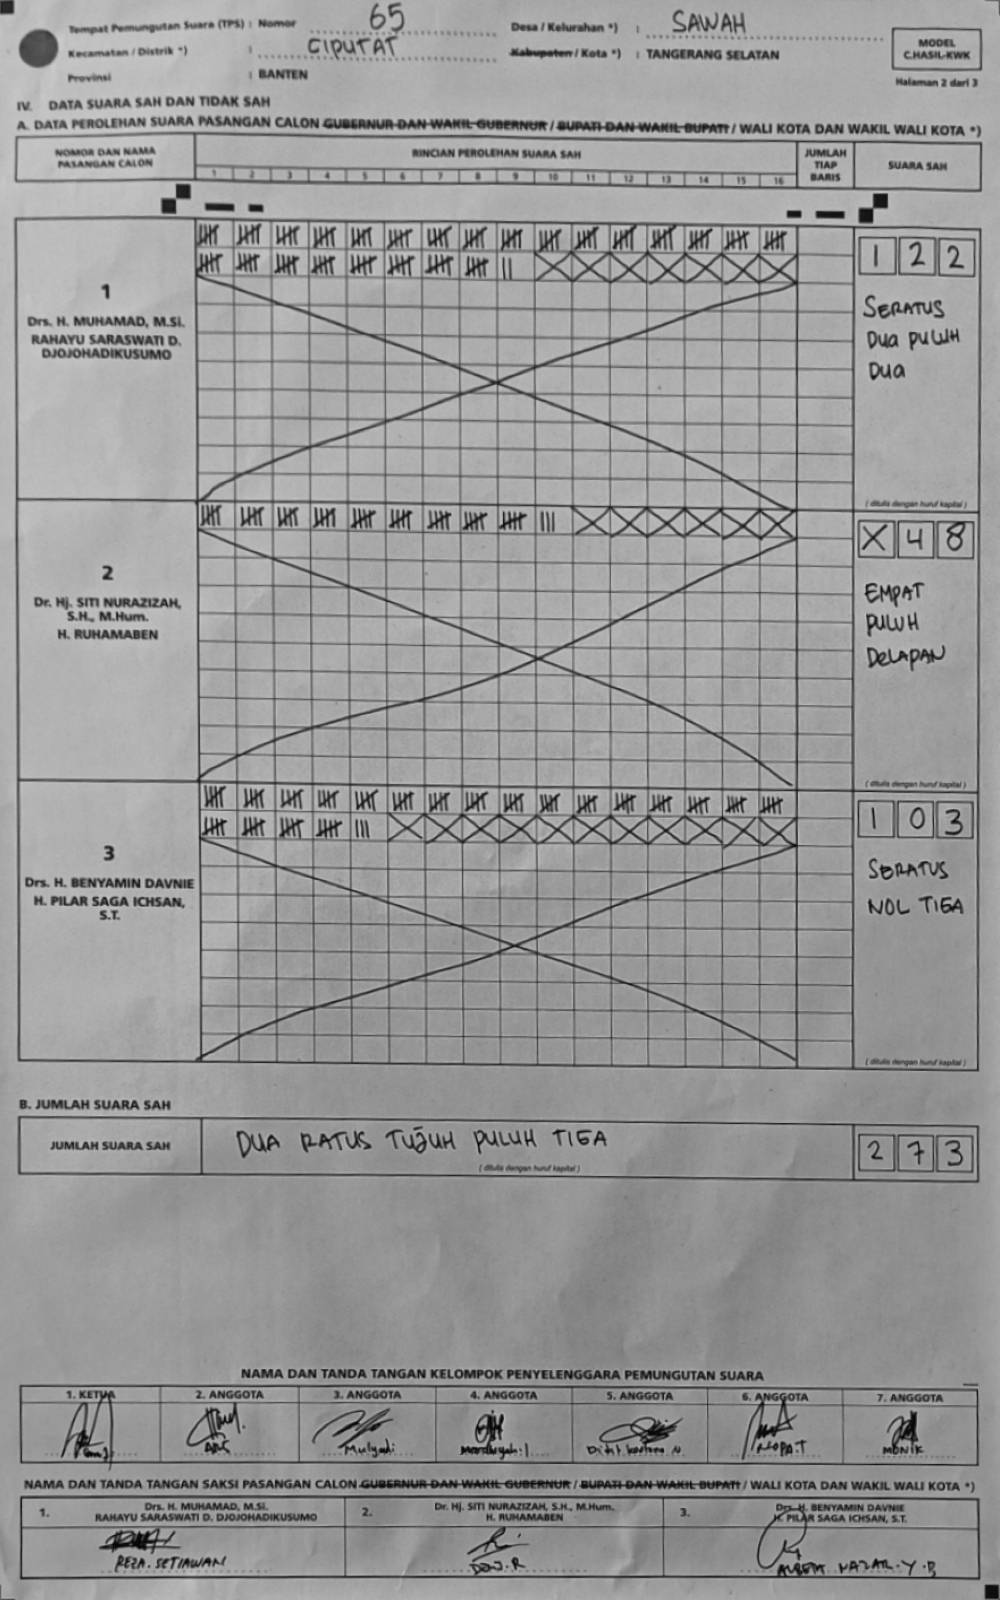 Tempat Pemungutan Suara (TPS) : Nomor 65 Desa / Kelurahan *) : SAWAH
Kecamatan / Distrik *) : CIPUTAT Kabupaten / Kota *) : TANGERANG SELATAN
Provinsi : BANTEN
MODEL
C.HASIL-KWK
Halaman 2 dari 3
IV. DATA SUARA SAH DAN TIDAK SAH
A. DATA PEROLEHAN SUARA PASANGAN CALON GUBERNUR DAN WAKIL GUBERNUR / BUPATI DAN WAKIL BUPATI / WALI KOTA DAN WAKIL WALI KOTA *)
NOMOR DAN NAMA
PASANGAN CALON
RINCIAN PEROLEHAN SUARA SAH
1 2 3 4 5 6 7 8 9 10 11 12 13 14 15 16
JUMLAH
TIAP
BARIS
SUARA SAH
1
Drs. H. MUHAMAD, M.Si.
RAHAYU SARASWATI D.
DJOJOHADIKUSUMO
1 2 2
SERATUS
DUA PULUH
DUA
( ditulis dengan huruf kapital )
2
Dr. Hj. SITI NURAZIZAH,
S.H., M.Hum.
H. RUHAMABEN
X 4 8
EMPAT
PULUH
DELAPAN
( ditulis dengan huruf kapital )
3
Drs. H. BENYAMIN DAVNIE
H. PILAR SAGA ICHSAN,
S.T.
1 0 3
SERATUS
NOL TIGA
( ditulis dengan huruf kapital )
B. JUMLAH SUARA SAH
JUMLAH SUARA SAH
DUA RATUS TUJUH PULUH TIGA
( ditulis dengan huruf kapital )
2 7 3
NAMA DAN TANDA TANGAN KELOMPOK PENYELENGGARA PEMUNGUTAN SUARA
1. KETUA 2. ANGGOTA 3. ANGGOTA 4. ANGGOTA 5. ANGGOTA 6. ANGGOTA 7. ANGGOTA
Mulyadi
MONIK
NAMA DAN TANDA TANGAN SAKSI PASANGAN CALON GUBERNUR DAN WAKIL GUBERNUR / BUPATI DAN WAKIL BUPATI / WALI KOTA DAN WAKIL WALI KOTA *)
1. Drs. H. MUHAMAD, M.Si.
RAHAYU SARASWATI D. DJOJOHADIKUSUMO
REZA. SETIAWAN
2. Dr. Hj. SITI NURAZIZAH, S.H., M.Hum.
H. RUHAMABEN
3. Drs. H. BENYAMIN DAVNIE
H. PILAR SAGA ICHSAN, S.T.